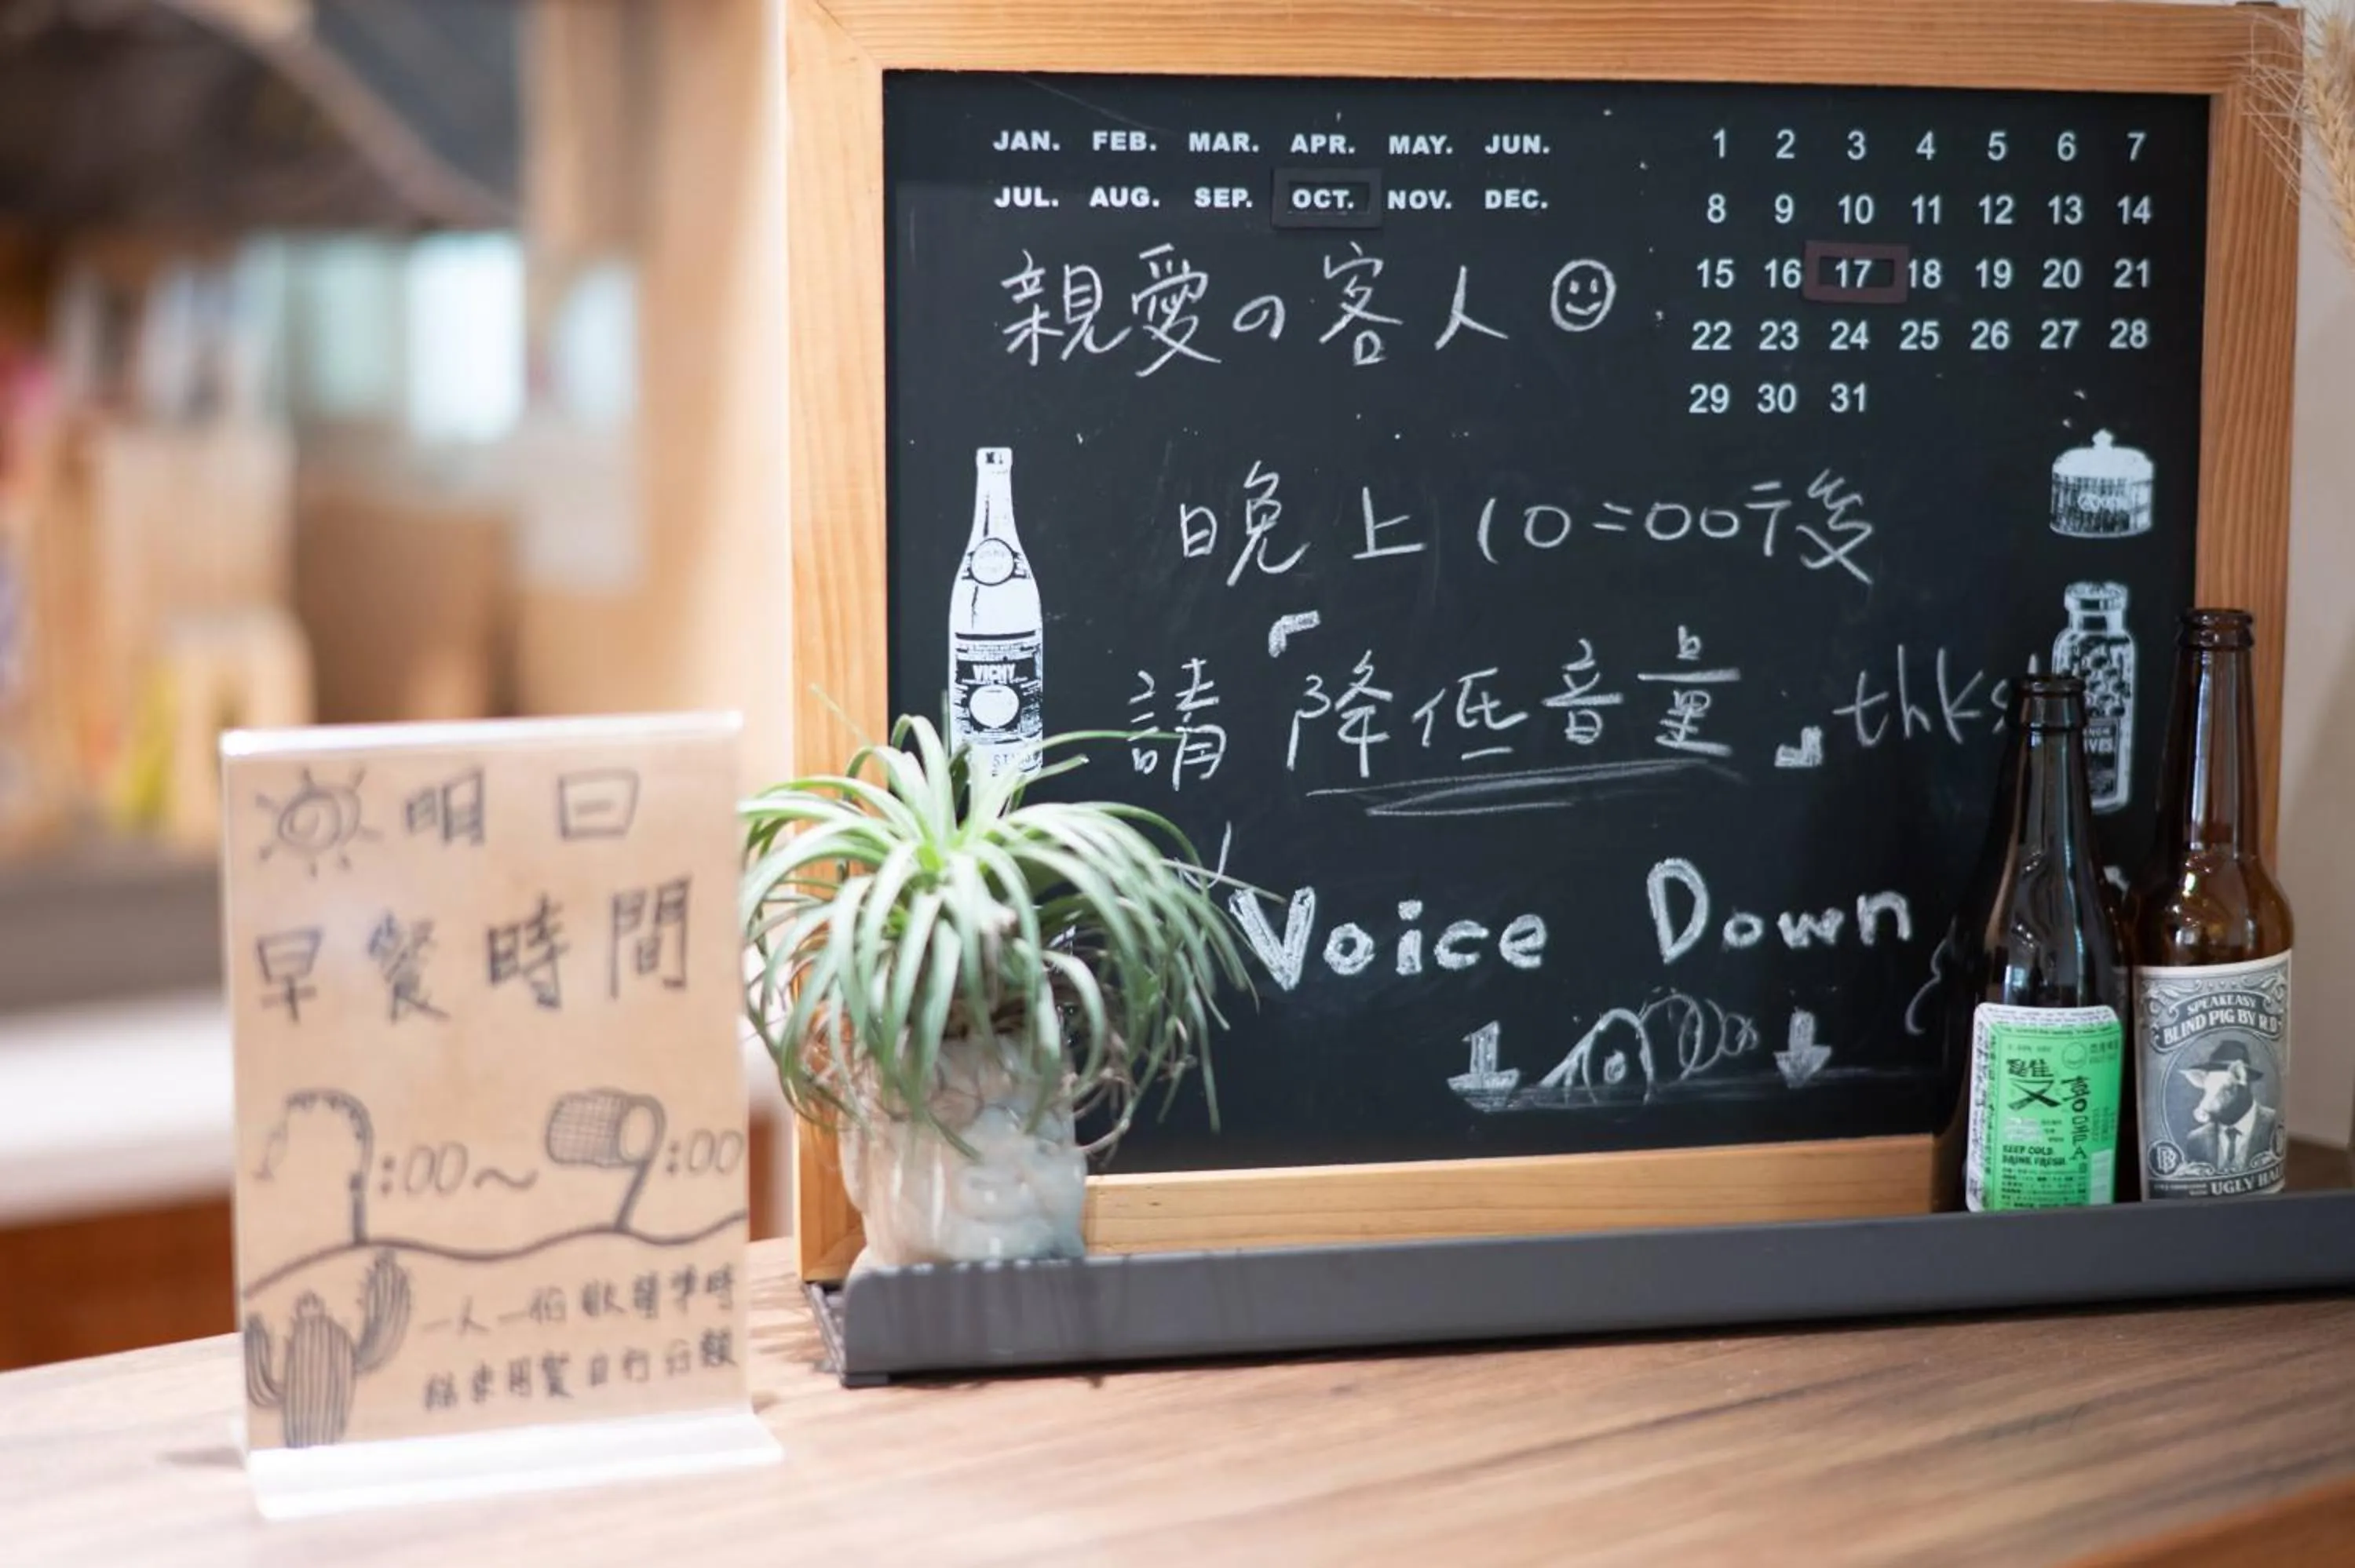 明日
早餐時間
7:00~9:00
一人一份
用餐 自行分類
JAN. FEB. MAR. APR. MAY. JUN.
JUL. AUG. SEP. OCT. NOV. DEC.
1 2 3 4 5 6 7
8 9 10 11 12 13 14
15 16 17 18 19 20 21
22 23 24 25 26 27 28
29 30 31
親愛の客人
晚上10:00干後
請「降低音量」thks
Voice Down
VICHY
雙
KEEP COLD.
DRINK FRESH.
SPEAKEASY
BLIND PIG BY R.D
UGLY HA